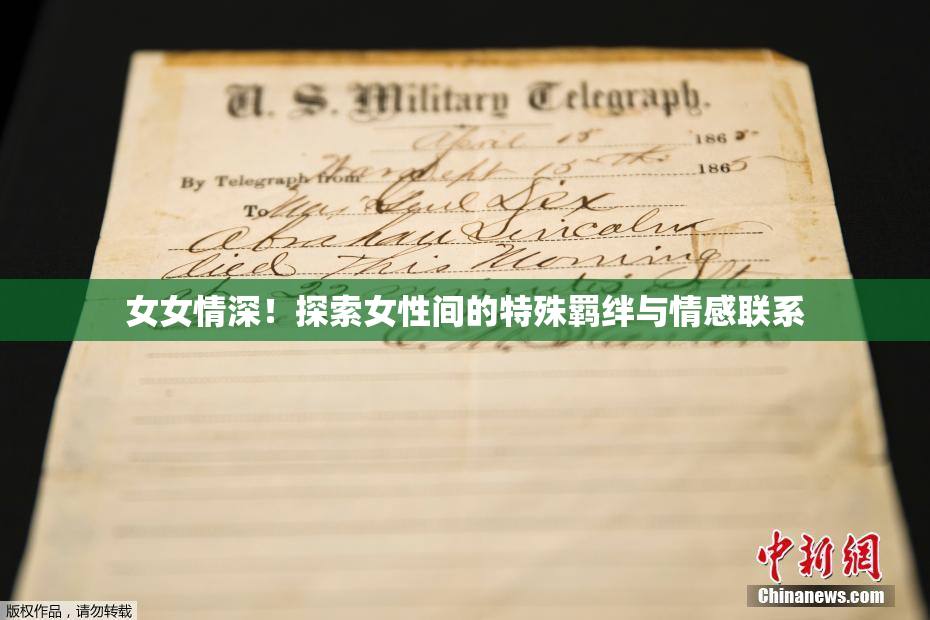 U. S. Military Telegraph.
April 15 1865
By Telegraph from War Dept 15th 1865
To Maj Genl Dix
Abraham Lincoln
died this Morning
at 22 minutes after
女女情深！探索女性间的特殊羁绊与情感联系
E. M. Stanton
中新网
Chinanews.com
版权作品，请勿转载